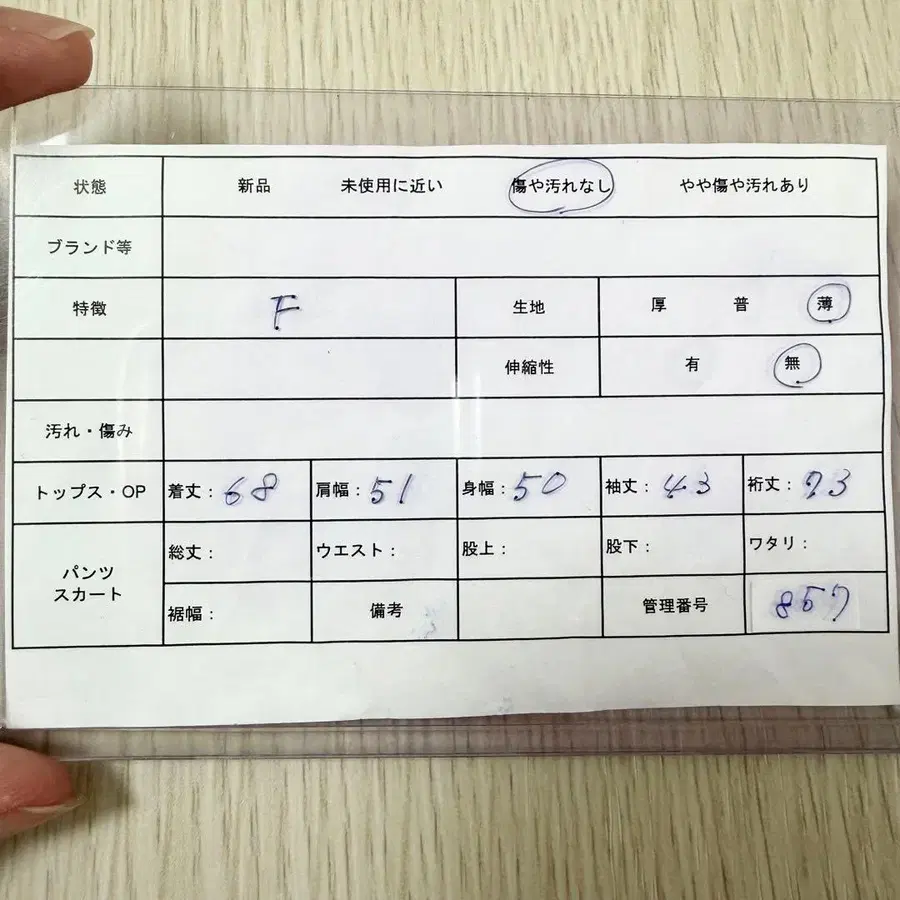 状態 新品 未使用に近い 傷や汚れなし やや傷や汚れあり
ブランド等
特徴 F 生地 厚 普 薄
伸縮性 有 無
汚れ・傷み
トップス・OP 着丈：68 肩幅：51 身幅：50 袖丈：43 裄丈：73
パンツ スカート 総丈： ウエスト： 股上： 股下： ワタリ：
裾幅： 備考 管理番号 857